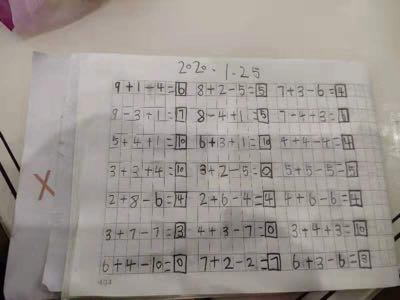 2020.1.25
9+1-4=6 8+2-5=5 7+3-6=4
9-3+1=7 8-4+1=5 7-4+3=6
5+4+1=10 6+3+1=10 4+4-4=4
3+3+4=10 3+2-5=0 5+5-5=5
2+8-6=4 2+6-4=4 4+6-6=4
3+7-7=3 4+3-7=0 3+4+3=10
6+4-10=0 7+2-2=7 6+3-6=3